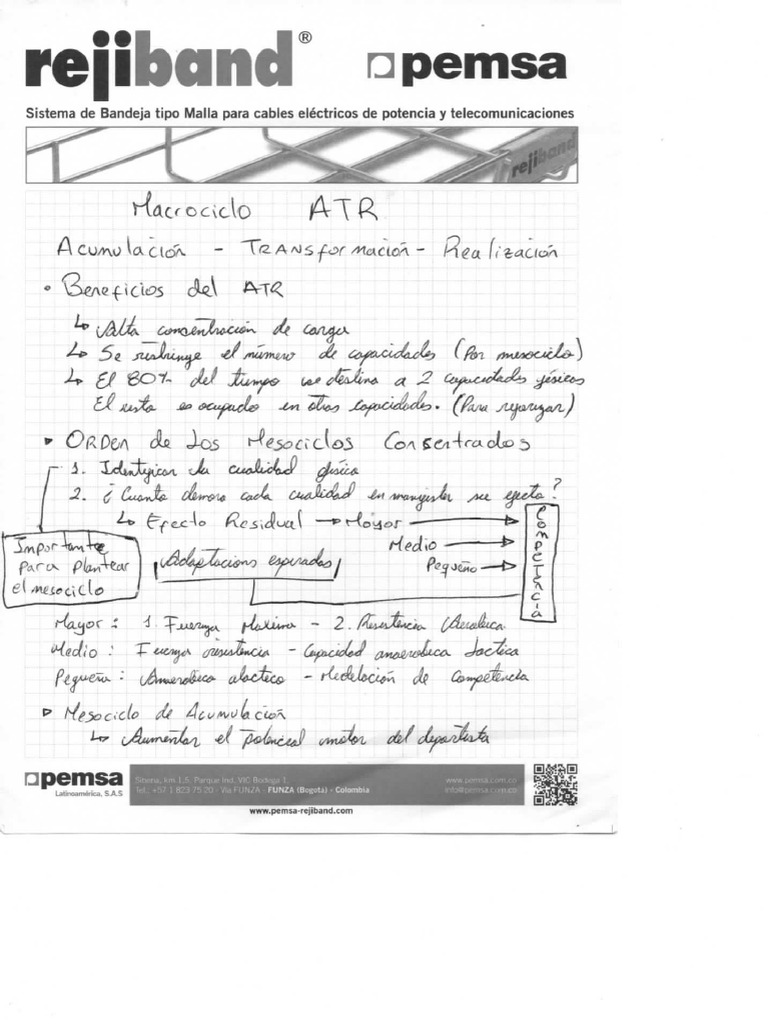 rejiband® pemsa
Sistema de Bandeja tipo Malla para cables eléctricos de potencia y telecomunicaciones
rejiband
Macrociclo ATR
Acumulación - TRANSformación - Realización
• Beneficios del ATR
↳ Alta concentración de carga
↳ Se restringe el número de capacidades (Por mesociclo)
↳ El 80% del tiempo se destina a 2 capacidades físicas
El resto es ocupado en otras capacidades. (Para reforzar)
▸ ORDEN de Los Mesociclos Consentrados
1. Identificar la cualidad física
2. ¿Cuanto demora cada cualidad en manifestar su efecto?
↳ Efecto Residual → Mayor →
Medio →
Pequeño →
Competencia
Importante
para plantear
el mesociclo
Adaptacions esperadas
Mayor: 1. Fuerza Maxima - 2. Resistencia Aerobica
Medio: Fuerza resistencia - Capacidad anaerobica lactica
Pequeña: Anaerobico alactico - Modelación de Competencia
▷ Mesociclo de Acumulación
↳ Aumentar el potencial motor del deportista
pemsa
Latinoamérica, S.A.S
Siberia, km 1,5, Parque Ind. VIC Bodega 1.
Tel.: +57 1 823 75 20 · Vía FUNZA · FUNZA (Bogota) · Colombia
www.pemsa.com.co
info@pemsa.com.co
www.pemsa-rejiband.com